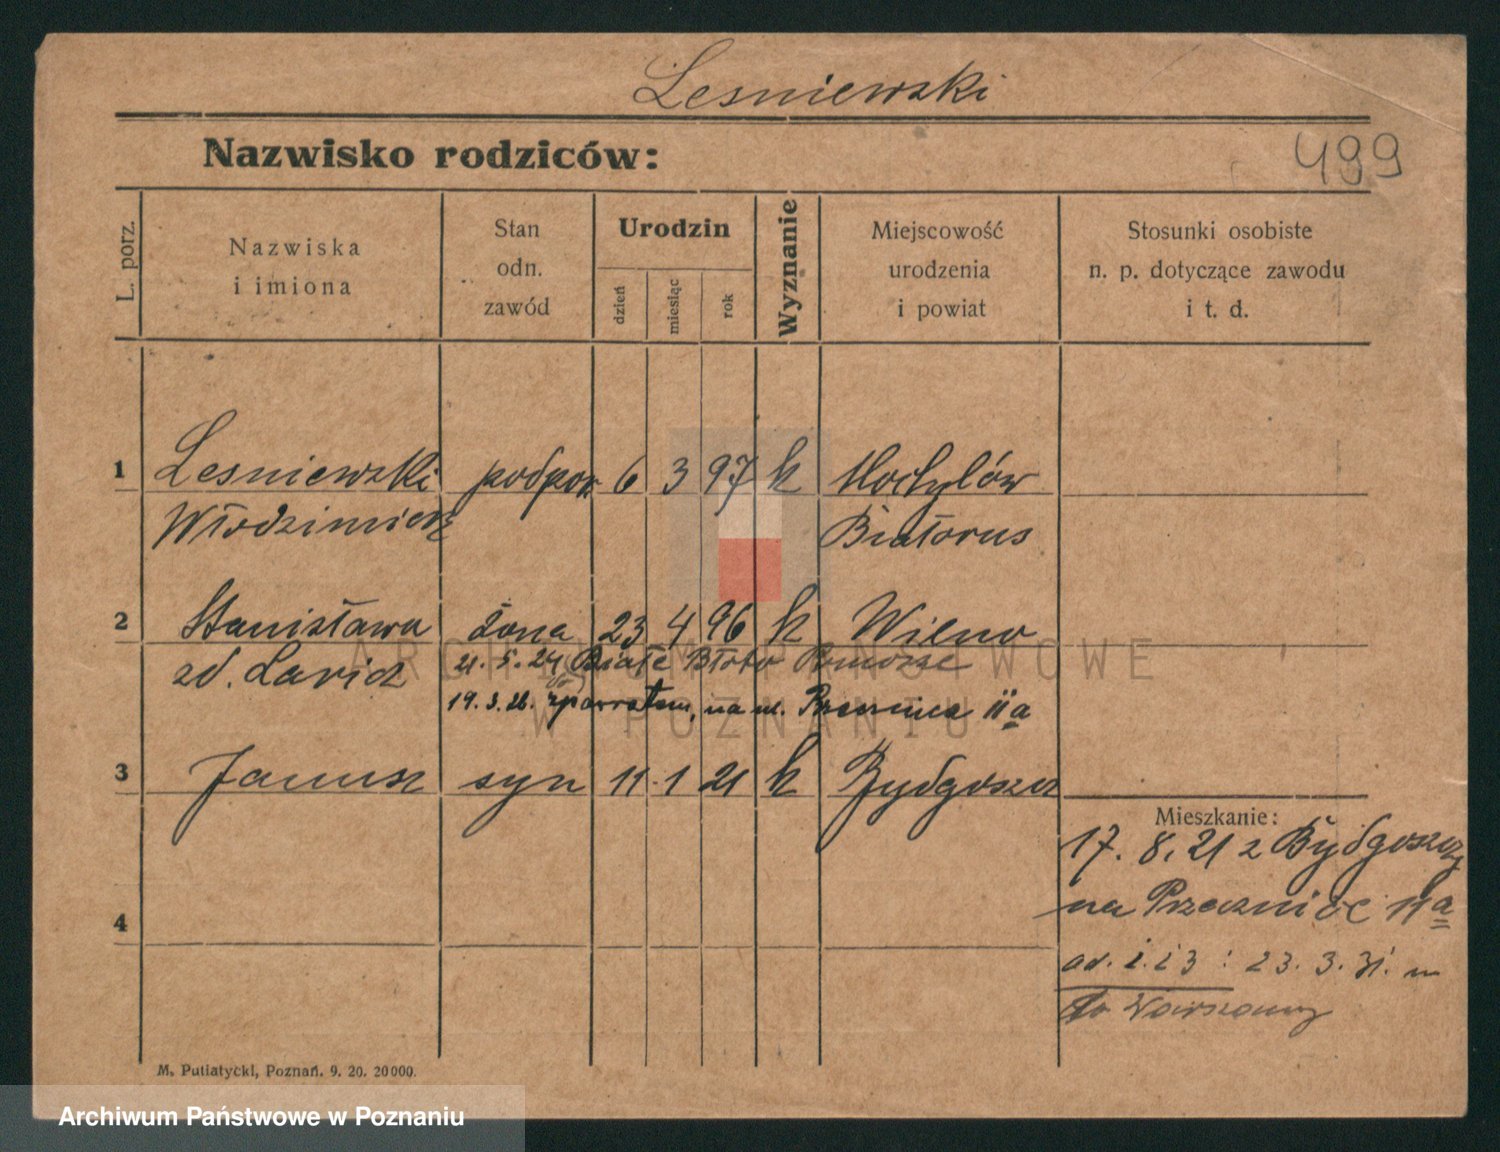 Lesniewski
Nazwisko rodziców:
499
L. porz.
Nazwiska
i imiona
Stan
odn.
zawód
Urodzin
dzień
miesiąc
rok
Wyznanie
Miejscowość
urodzenia
i powiat
Stosunki osobiste
n. p. dotyczące zawodu
i t. d.
1 Lesniewski podpor 6 3 97 k Mochylów
Włodzimierz Białorus
2 Stanisława żona 23 4 96 k Wilno
zd. Laridz 21. 5. 24 Białe Błoto Pomorze
19. 3. 26. zpowrotem, na ul. Przecznica 11a
3 Janusz syn 11 1 21 k Bydgoszcz
Mieszkanie:
17. 8. 21 z Bydgoszczy
na Przecznice 11a
4
23. 3. 31.
do Warszawy
M. Putiatycki, Poznań. 9. 20. 20000.
ARCHIWUM PAŃSTWOWE
W POZNANIU
Archiwum Państwowe w Poznaniu